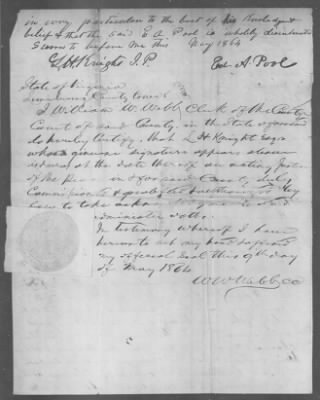 in every particular to the best of his knowledge &
belief & that the said E A Pool is wholly disinterested
Sworn to before me this May 1864
L H Knight J.P. Ed. A. Pool
State of Virginia
County Court
I William W. Webb Clerk of the County
Court of said County, in the State aforesaid
do hereby certify, that L H Knight Esqr
whose genuine signature appears above
was at the date thereof an acting Justice
of the Peace in & for said County duly
Commissioned & qualified
to take
administer oaths.
In testimony whereof I have
hereunto set my hand & affixed
my official seal this 9th day
of May 1864
W W Webb CC